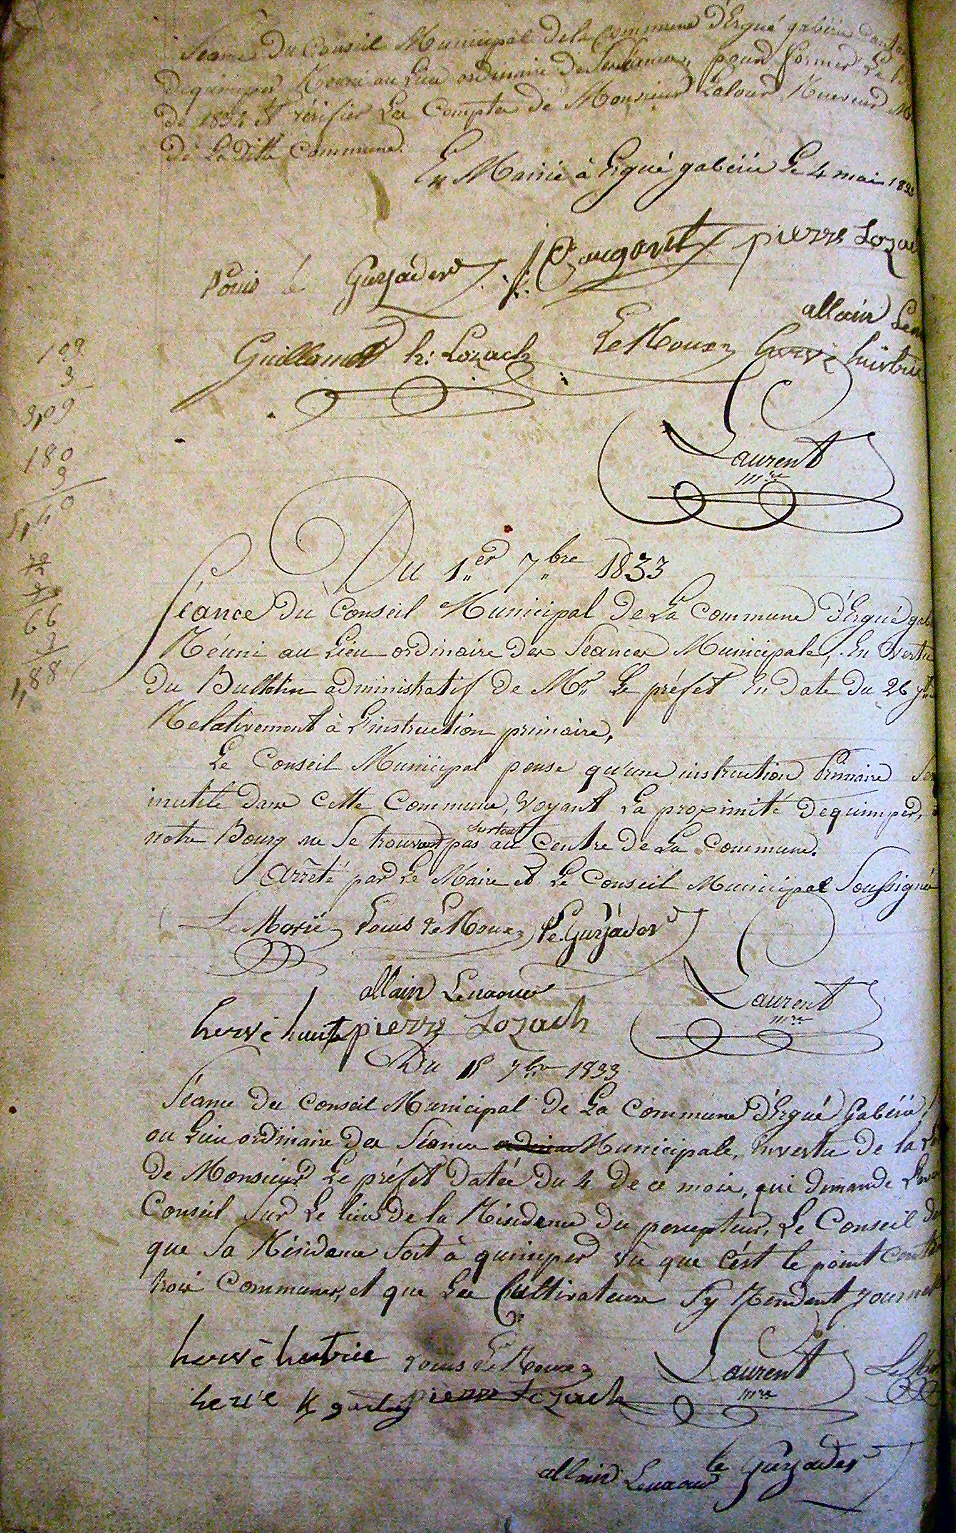 Séance du Conseil Municipal de la Commune d'Ergué gabéric
de quimper Réuni au Lieu ordinaire des Séances, pour former le
de 1834 et vérifier les Comptes de Monsieur Receveur
de La ditte Commune.
En Mairie à Ergué gabéric Le 4 mai 1833
Louis le Guyader pierre Lozac
allain Len
Guillaume h: Lozach Le Roux hervé huitric
Laurent
mre
199
3
180
3
66
3
1,88
Du 1er 7bre 1833
Séance du Conseil Municipal de La Commune d'Ergué gab
Réuni au Lieu ordinaire des Séances Municipale, En Vertu
du Bulletin administratif de Mr Le préfet En date du 26
Relativement à L'instruction primaire,
Le Conseil Municipal pense qu'une instruction Primaire Ser
inutile dans cette Commune Voyant La proximité de quimper,
notre Bourg ne Se trouvant pas surtout au Centre de La Commune.
Arrêté par Le Maire et Le Conseil Municipal Soussigné
Louis Le Roux Le Guyader
allain Lenaour Laurent
mre
hervé huitric pierre Lozach
Du 15 7bre 1833
Séance du Conseil Municipal de La Commune d'Ergué Gabéric
au Lieu ordinaire des Séances Municipale, Envertu de la
de Monsieur Le préfet Datée du 4 de ce mois, qui demande
Conseil Sur Le lieu de la Résidence du percepteur, Le Conseil
que Sa Résidence Soit à quimper vu que c'est le point cent
trois Communes, et que Les Cultivateurs S'y Rendent Journ
hervé huitric Louis Le Roux Laurent
mre
hervé pierre Lozach
allain Lenaour le Guyader